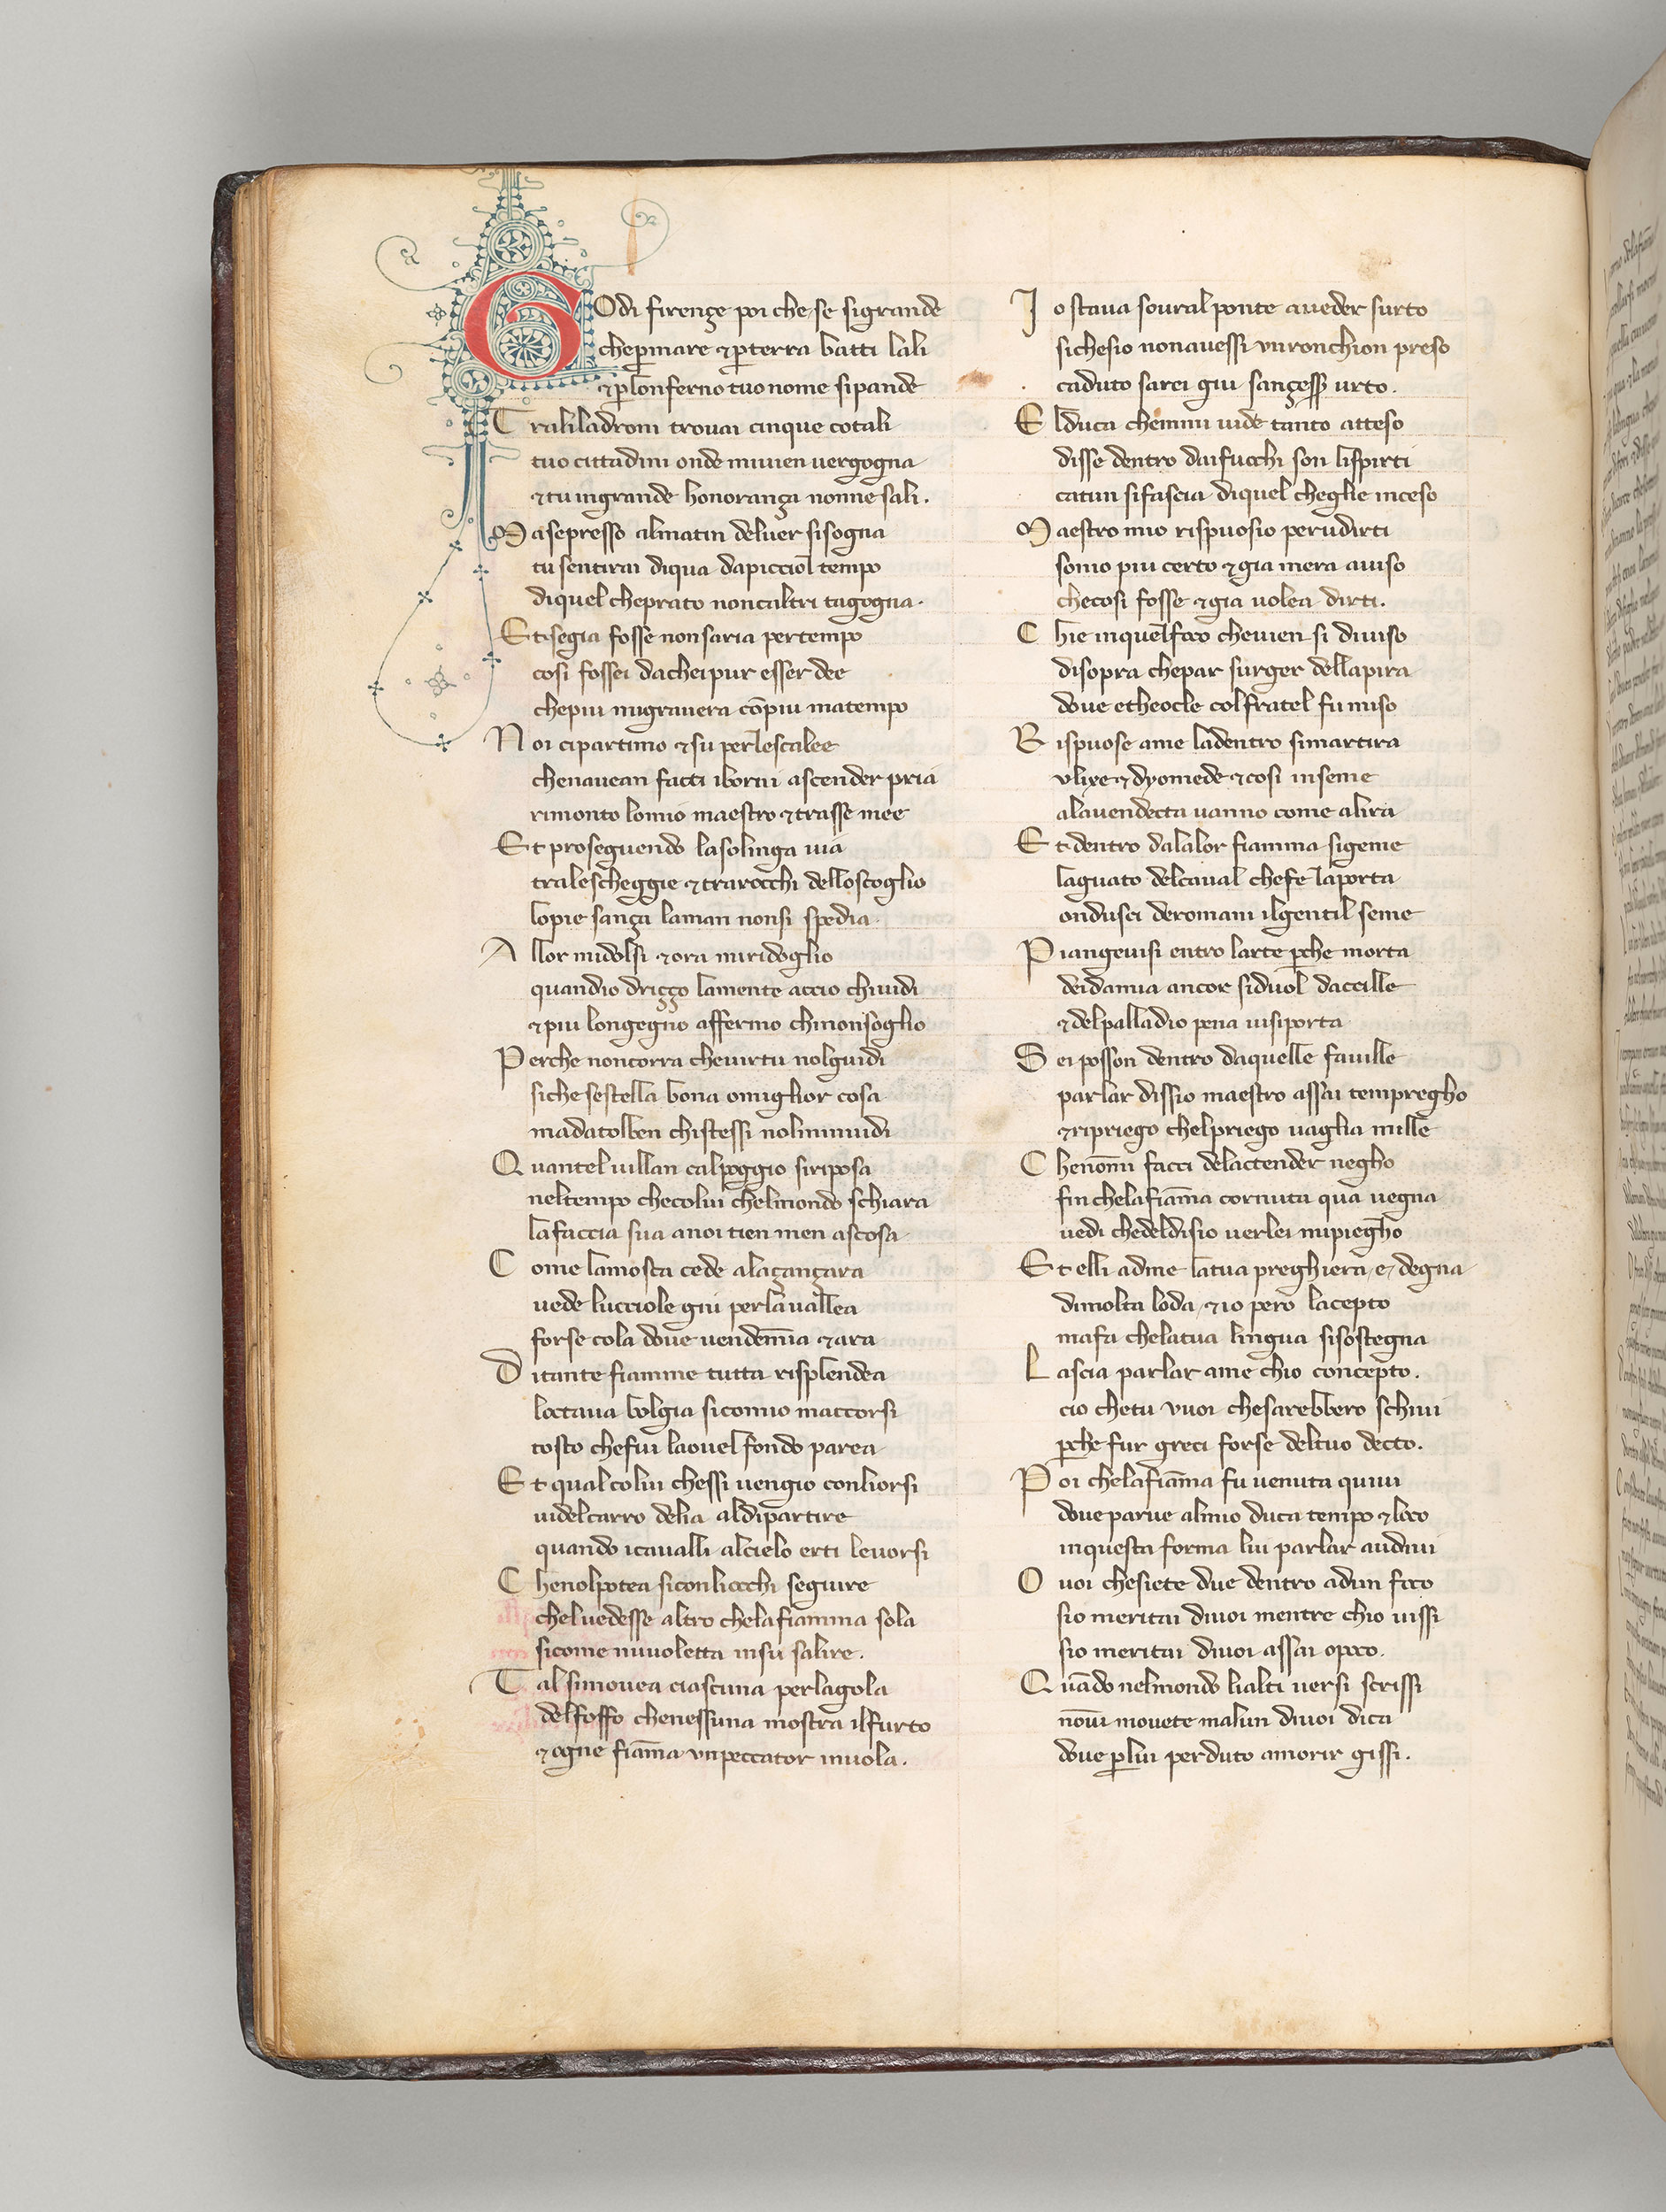 GOdi firençe poi che se sigrande
che p̱mare ⁊ p̱terra batti lali
⁊ p̱lonferno tuo nome sipande
Traliladroni trovai cinque cotali
tuo cittadini onde mivien vergogna
⁊ tu ingrande honorança nonne sali.
Masepresso almatin delver sisogna
tu sentirai diqua dapicciol tempo
diquel cheprato noncaltri tagogna.
Et segia fosse non saria pertempo
cosi fossei dachei pur esser dee
chepiu migravera cō piu matempo
Noi cipartimo ⁊ su perlescalee
chenavean facti iborni ascender pria
rimonto lomio maestro ⁊ trasse mee
Et proseguendo lasolinga via
tralescheggie ⁊ trarocchi delloscoglio
lopie sança laman nonsi spedia.
Allor midolsi ⁊ ora miridoglio
quandio driçço lamente accio chividi
⁊ piu longegno affermo chinonsoglio
Perche noncorra chevirtu nolguidi
siche sestella bona omiglior cosa
madatolben chistessi nolminvidi
Quantel villan calpoggio siriposa
neltempo checolui chelmondo schiara
lafaccia sua anoi tien men ascosa
Come lamosca cede alaçançara
vede lucciole giu perlavallea
forse cola dove vendēmia ⁊ ara
Ditante fiamme tutta risplendea
loctava bolgia sicomio maccorsi
tosto chefui laovel fondo parea
Et qual colui chessi vengio conliorsi
videlcarro delia aldipartire
quando icavalli alcielo erti levorsi
Chenolpotea siconliocchi seguire
chelvedesse altro chelafiamma sola
sicome nuvoletta insu salire.
Tal simovea ciascuna perlagola
delfosso chenessuna mostra ilfurto
⁊ ogne fiāma vnpeccator invola.
Io stava sovral ponte aveder surto
sichesio nonavessi vnronchion preso
caduto sarei giu sançesser urto.
Elduca chemmi vide tanto atteso
disse dentro daifuochi son lispirti
catun sifascia diquel cheglie inceso
Maestro mio rispuosio perudirti
sonio piu certo ⁊ gia mera aviso
checosi fosse ⁊ gia volea dirti.
Chie inquelfoco chevien si diviso
disopra chepar surger dellapira
dove etheocle colfratel fu miso
Rispuose ame ladentro simartira
vlixe ⁊ dyomede ⁊ cosi inseme
alavendecta vanno come alira
Et dentro dalalor fiamma sigeme
laguato delcaval chefe laporta
ondusci deromani ilgentil seme
Piangevisi entro larte p̱che morta
deidamia ancor siduol daccille
⁊ delpalladio pena visiporta
Sei posson dentro daquelle faville
parlar dissio maestro assai tempregho
⁊ ripriego chelpriego vaglia mille
Chenōmi facci delactender negho
fin chelafiāma cornuta qua vegna
vedi chedeldisio verlei mipiegho
Et elli adme latua preghiera e degna
dimolta loda ⁊ io pero lacepto
mafa chelatua lingua sisostegna
Lascia parlar ame chio concepto.
cio chetu vuoi chesarebbero schivi
p̱che fur greci forse deltuo decto.
Poi chelafiāma fu venuta quivi
dove parve almio duca tempo ⁊ loco
inquesta forma lui parlar audivi
O voi chesiete due dentro adun foco
sio meritai divoi mentre chio vissi
sio meritai divoi assai opoco.
Quādo nelmondo lialti versi scrissi
nōvi movete malun divoi dica
dove p̱lui perduto amorir gissi.